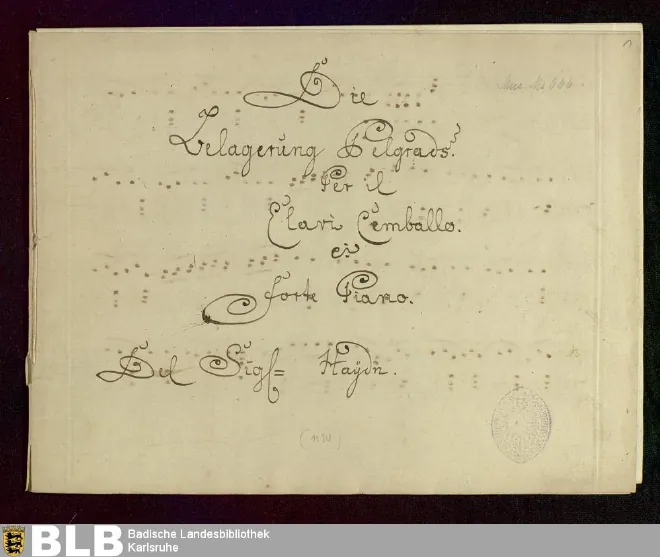 1
Mus. Ms 666
Die
Belagerung Belgrads.
Per il
Clavi Cemballo.
ed
Forte Piano.
Del Sigl= Haÿdn.
BLB Badische Landesbibliothek
Karlsruhe